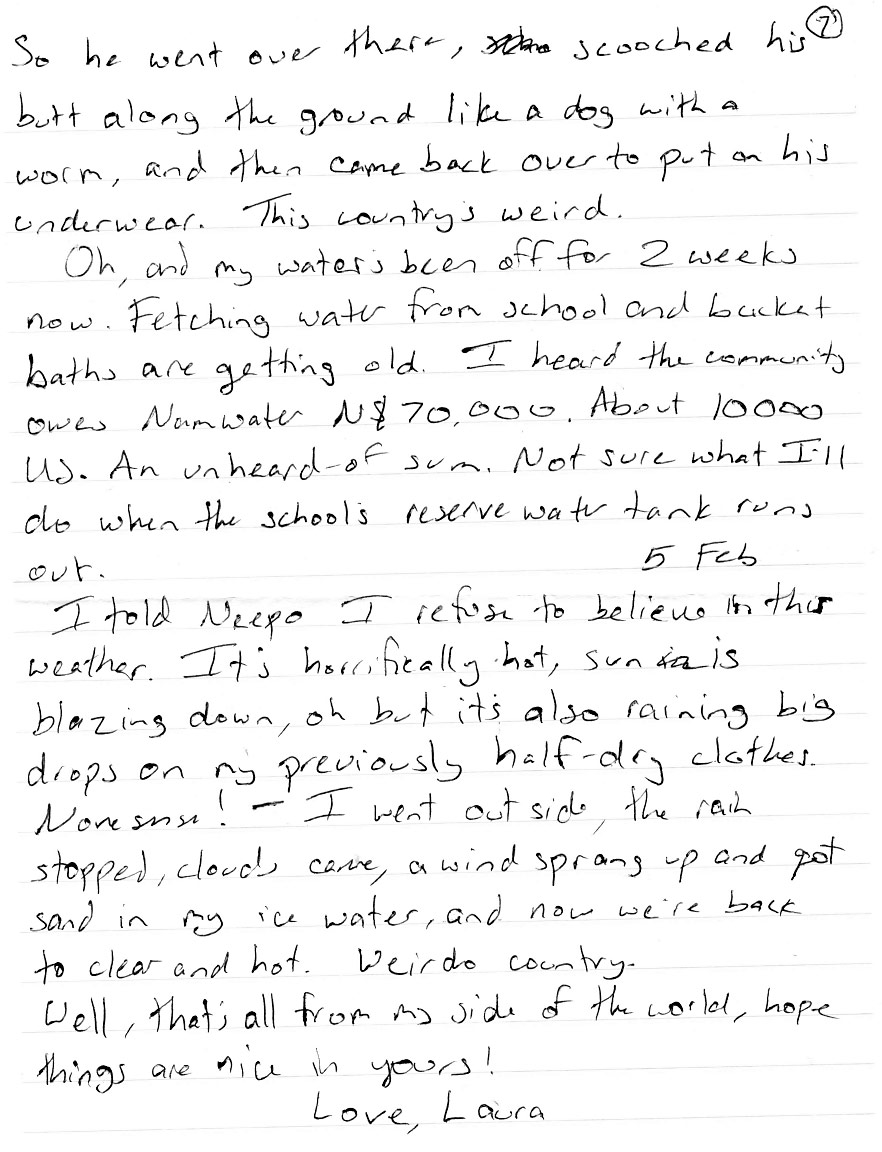 7
So he went over there, scooched his
butt along the ground like a dog with a
worm, and then came back over to put on his
underwear. This country's weird.
Oh, and my water's been off for 2 weeks
now. Fetching water from school and bucket
baths are getting old. I heard the community
owes Namwater N$70,000. About 10000
US. An unheard-of sum. Not sure what I'll
do when the school's reserve water tank runs
out. 5 Feb
I told Neepo I refuse to believe in this
weather. It's horrifically hot, sun is
blazing down, oh but it's also raining big
drops on my previously half-dry clothes.
Nonesense! - I went outside, the rain
stopped, clouds came, a wind sprang up and got
sand in my ice water, and now we're back
to clear and hot. Weirdo country.
Well, that's all from my side of the world, hope
things are nice in yours!
Love, Laura